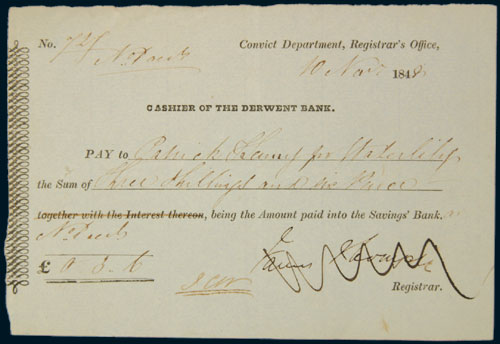 No. 721 Convict Department, Registrar's Office,
10 Novr 1848
CASHIER OF THE DERWENT BANK.
PAY to Patrick for Waterlily
the Sum of Three Shillings and six Pence
together with the Interest thereon, being the Amount paid into the Savings' Bank.
£ 0. 3. 6
Registrar.